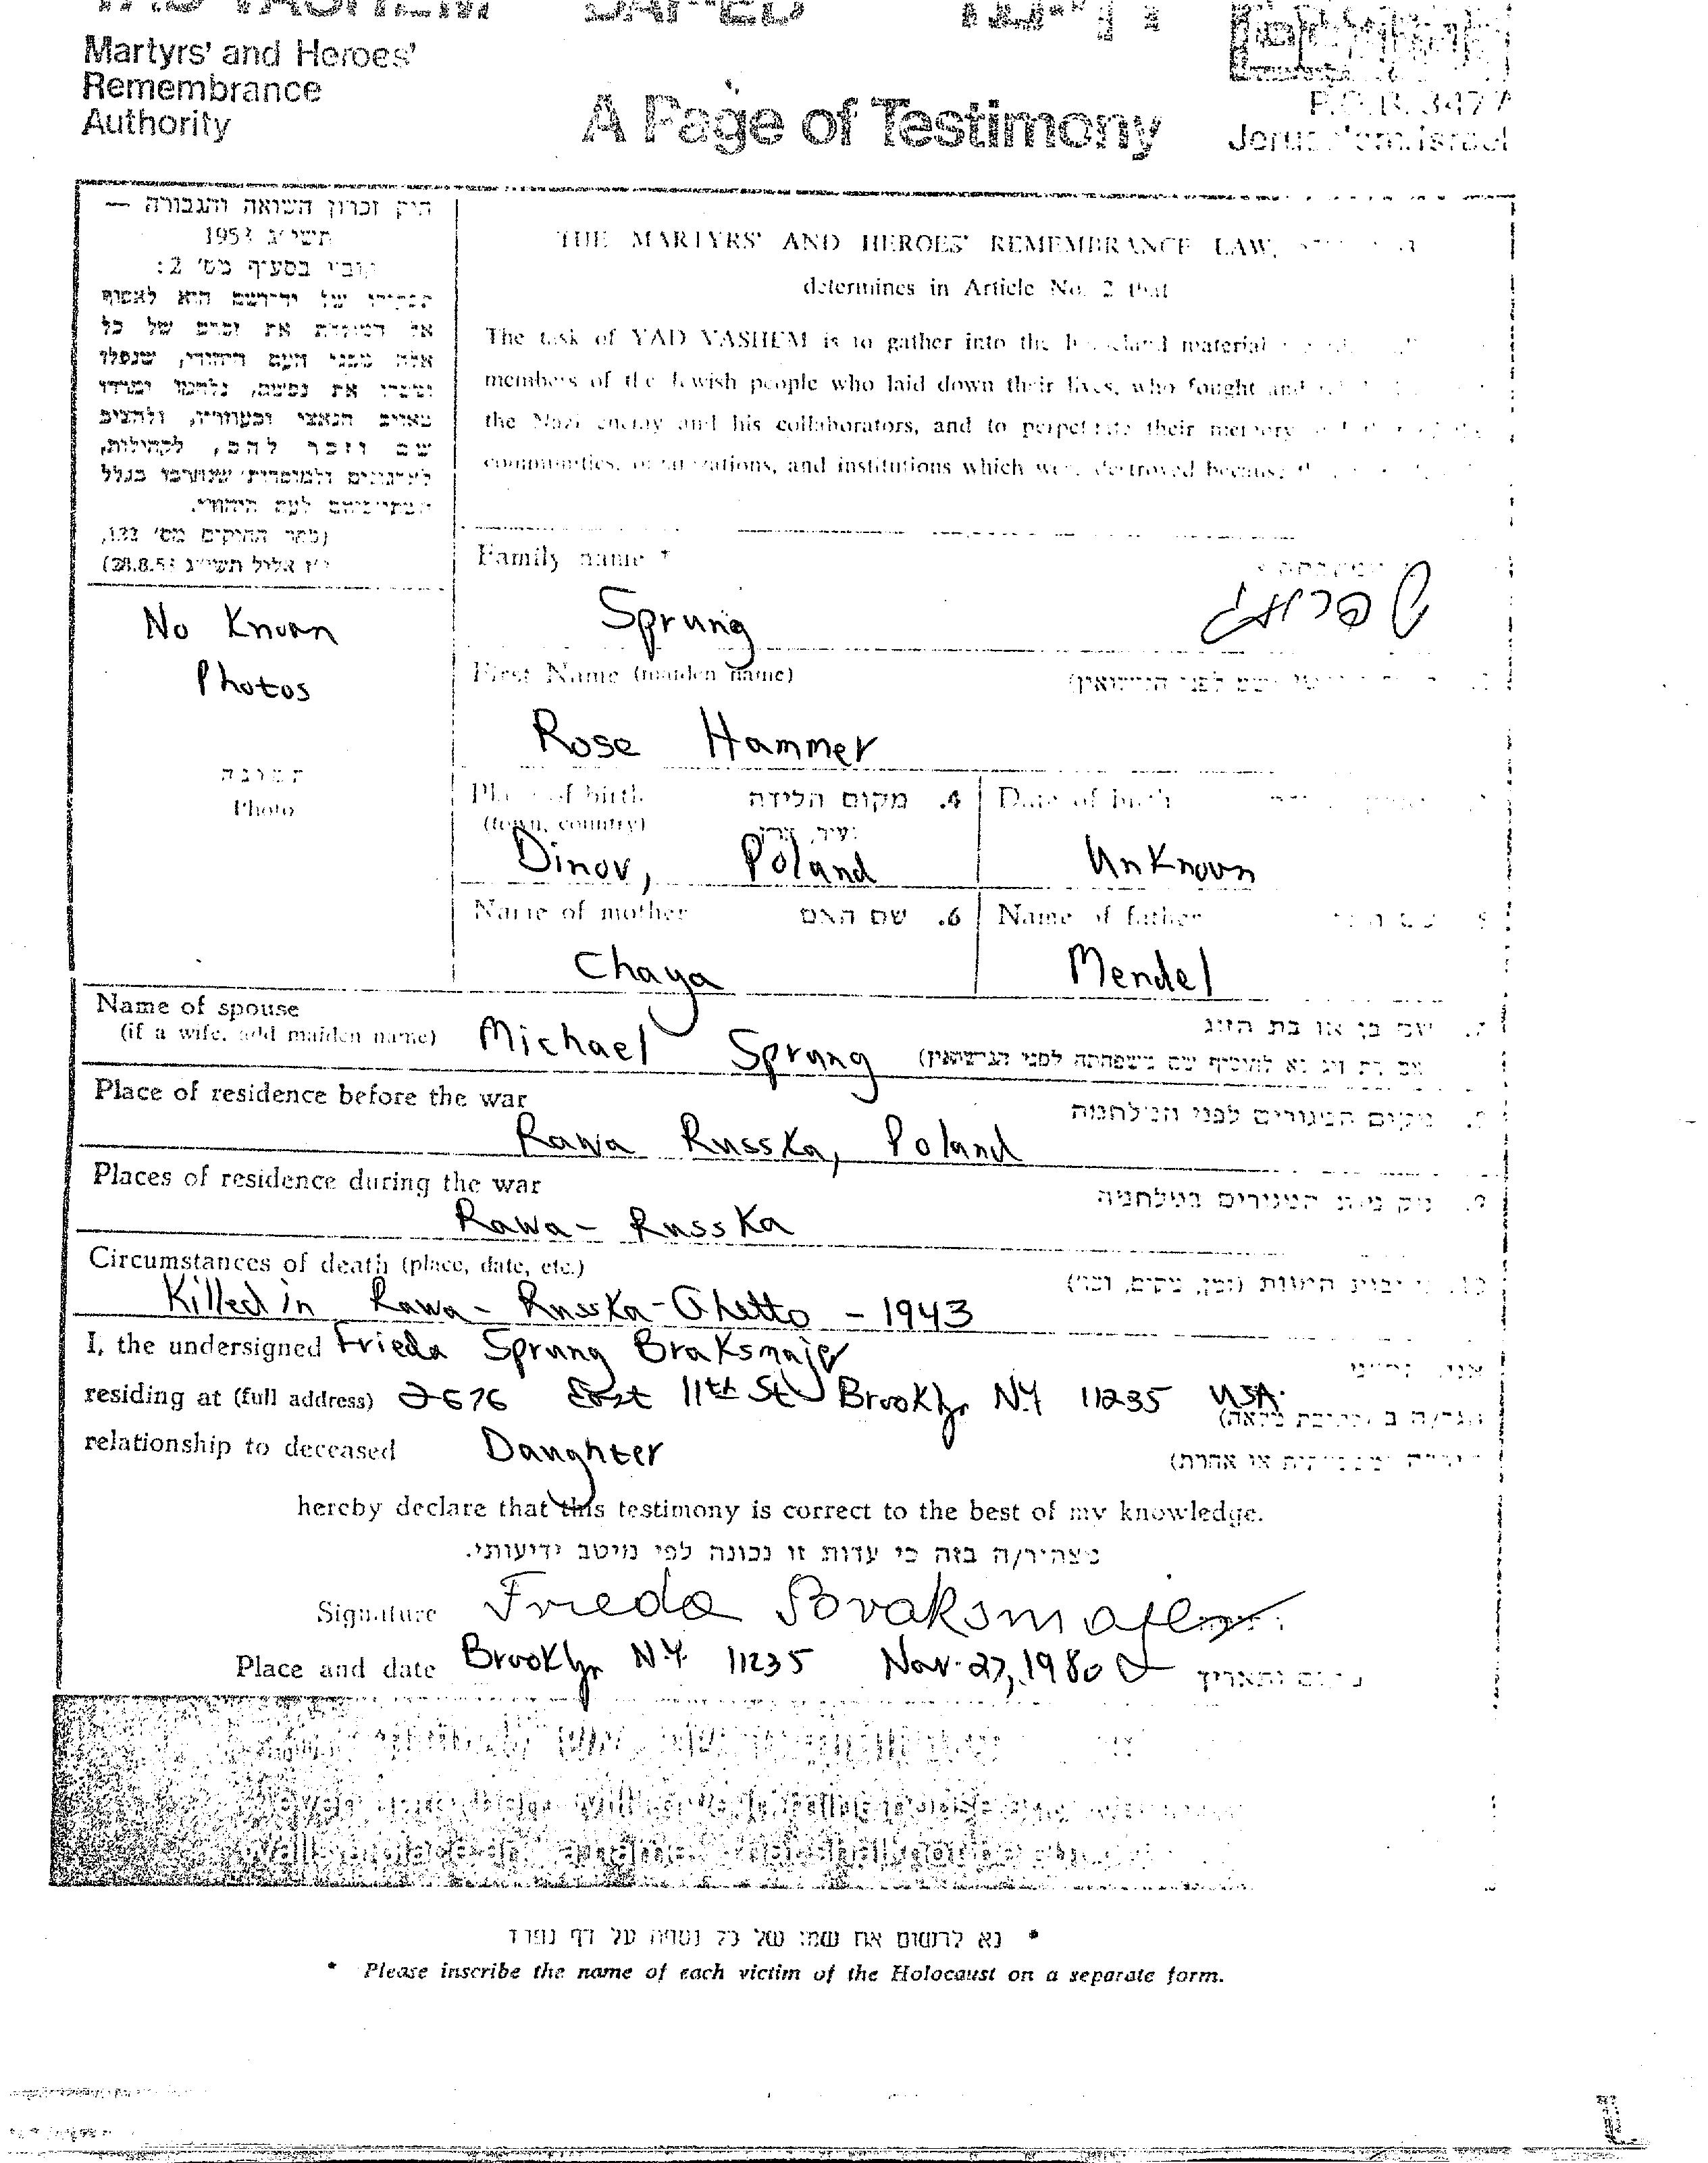 YAD VASHEM
DAF-ED
Martyrs' and Heroes'
Remembrance
Authority
A Page of Testimony
P.O.B. 3477
Jerusalem, Israel
חוק זכרון השואה והגבורה —
תשי"ג 1953
קובע בסעיף מס' 2:
תפקידו של יד־ושם הוא לאסוף
אל המולדת את זכרם של כל
אלה מבני העם היהודי, שנפלו
ומסרו את נפשם, נלחמו ומרדו
באויב הנאצי ובעוזריו, ולהציב
שם וזכר להם, לקהילות,
לארגונים ולמוסדות שנחרבו בגלל
השתייכותם לעם היהודי.
(ספר החוקים מס' 132,
י"ז אלול תשי"ג 28.8.53)
THE MARTYRS' AND HEROES' REMEMBRANCE LAW,
determines in Article No. 2 that
The task of YAD VASHEM is to gather into the homeland material
members of the Jewish people who laid down their lives, who fought and
the Nazi enemy and his collaborators, and to perpetuate their memory
communities, organizations, and institutions which were destroyed because
Family name *
Sprung
שפרונג
No Known
Photos
First Name (maiden name)
Rose Hammer
תמונה
Photo
Place of birth
(town, country)
4. מקום הלידה
Date of birth
Dinov, Poland
Unknown
Name of mother
6. שם האם
Name of father
Chaya
Mendel
Name of spouse
(if a wife, add maiden name)
Michael Sprung
7. שם בן או בת הזוג
Place of residence before the war
מקום המגורים לפני המלחמה
Rawa Russka, Poland
Places of residence during the war
המגורים במלחמה
Rawa - Russka
Circumstances of death (place, date, etc.)
10. המוות (זמן, מקום, וכו')
Killed in Rawa - Russka - Ghetto - 1943
I, the undersigned Frieda Sprung Braksmajer
residing at (full address) 2676 East 11th St Brooklyn N.Y 11235 USA.
relationship to deceased Daughter
hereby declare that this testimony is correct to the best of my knowledge.
מצהיר/ה בזה כי עדות זו נכונה לפי מיטב ידיעותי.
Signature Frieda Braksmajer
Place and date Brooklyn N.Y. 11235 Nov. 27, 1980
מקום ותאריך
* נא לרשום את שמו של כל נספה על דף נפרד
* Please inscribe the name of each victim of the Holocaust on a separate form.